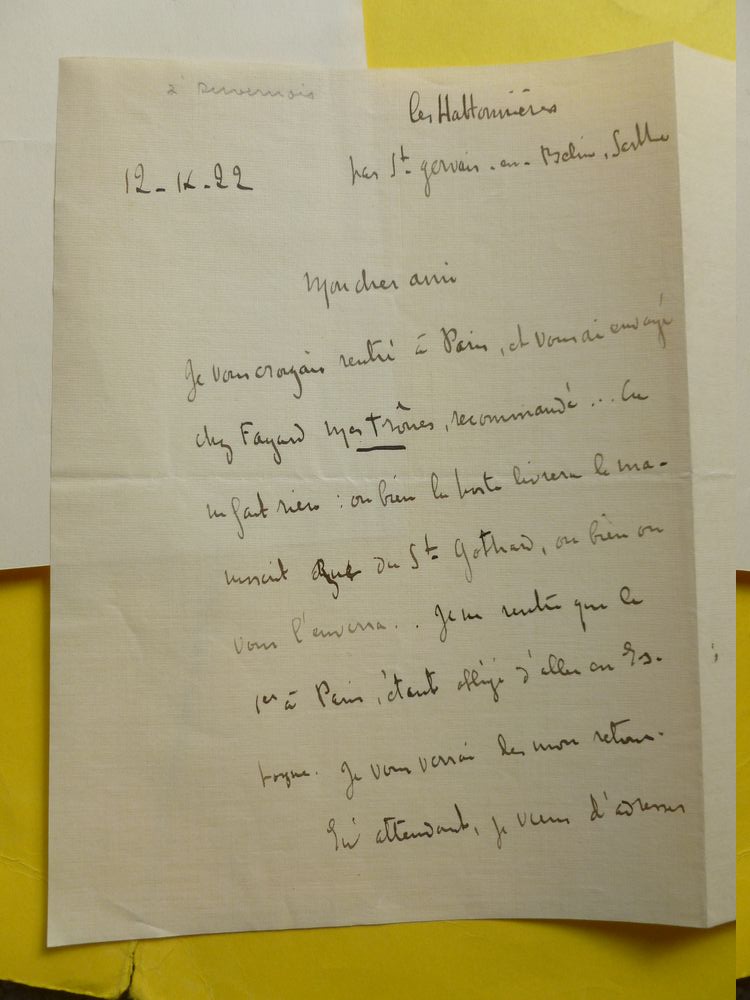 à Duvernois
les Hattonnières
par St. gervais-en-Belin, Sarthe
12-IX-22
Mon cher ami
Je vous croyais rentré à Paris, et vous ai envoyé
chez Fayard mes trônes, recommandé... Ça
ne fait rien : ou bien la poste livrera le ma-
nuscrit rue du St. Gothard, ou bien on
vous l'enverra.. Je ne rentre que le
1er à Paris, étant obligé d'aller en Es-
pagne. Je vous verrai dès mon retour.
En attendant, je viens d'adresser